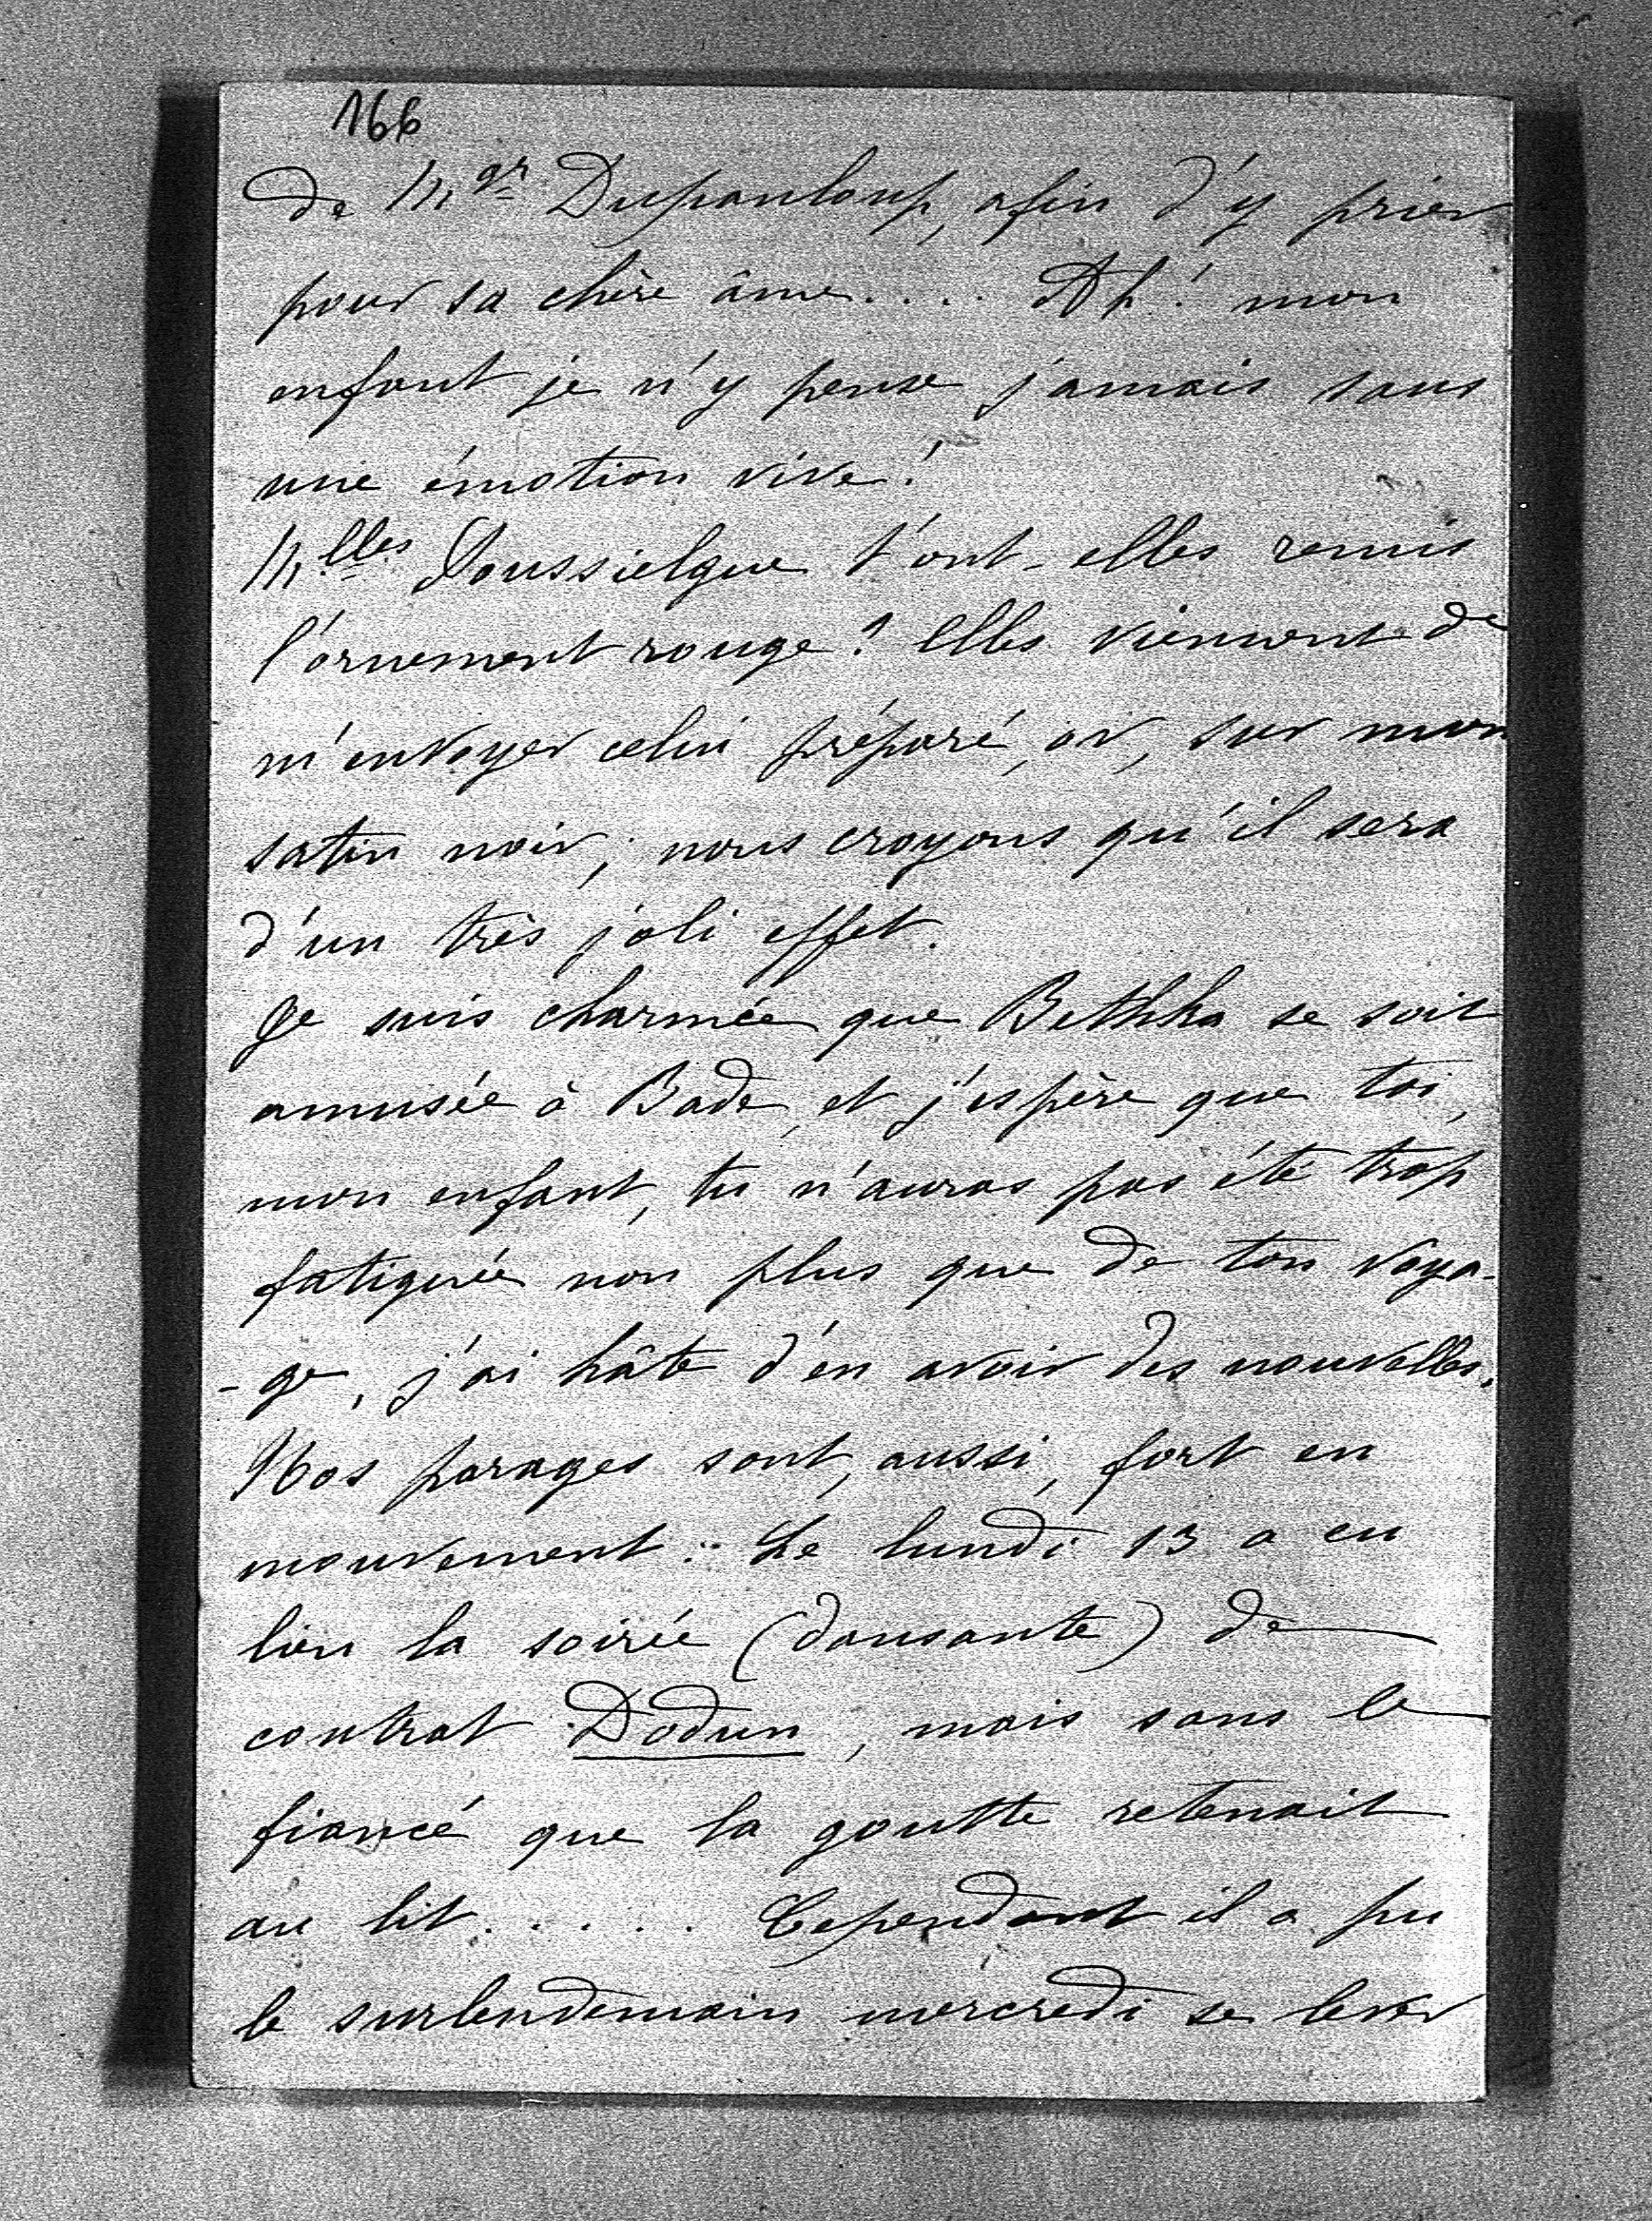 166
de Mgr Dupanloup, afin d'y prier
pour sa chère âme.... Ah! mon
enfant je n'y pense jamais sans
une émotion vive!
Mlles Poussielgue t'ont-elles remis
l'ornement rouge? Elles viennent de
m'envoyer celui préparé, or, sur mon
satin noir; nous croyons qu'il sera
d'un très joli effet.
Je suis charmée que Bethka se soit
amusée à Bade, et j'espère que toi,
mon enfant, tu n'auras pas été trop
fatiguée non plus que de ton voya-
-ge, j'ai hâte d'en avoir des nouvelles.
Nos parages sont, aussi, fort en
mouvement. Le lundi 13 a eu
lieu la soirée (dansante) de
contrat Dodun, mais sans le
fiancé que la goutte retenait
au lit..... Cependant il a pu
le surlendemain mercredi se lever